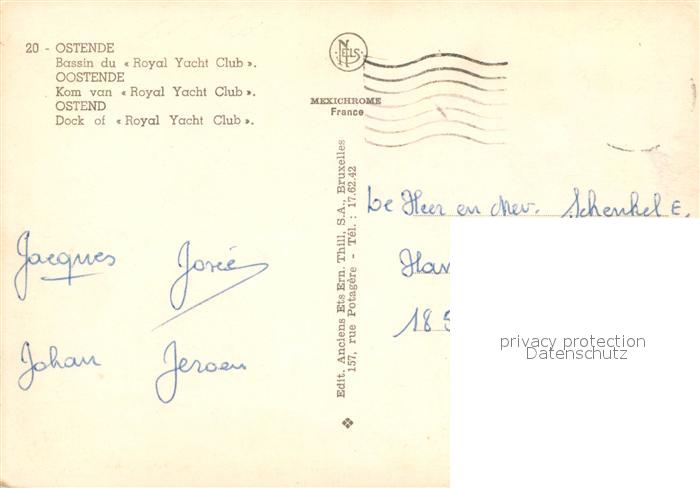 20 - OSTENDE
Bassin du « Royal Yacht Club ».
OOSTENDE
Kom van « Royal Yacht Club ».
OSTEND
Dock of « Royal Yacht Club ».
NELS
MEXICHROME
France
Edit. Anciens Ets Ern. Thill, S.A., Bruxelles
157, rue Potagère - Tél. : 17.62.42
De Heer en Mev. Schenkel E.
Jacques Josée
Johan Jeroen
privacy protection
Datenschutz